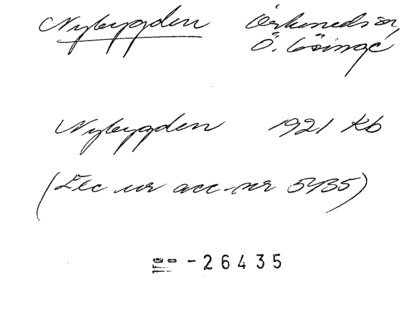 Nybygden Örkeneds sn,
Ö. Göinge
Nybygden 1921 Kb
(Exc ur acc-nr 5435)
-26435